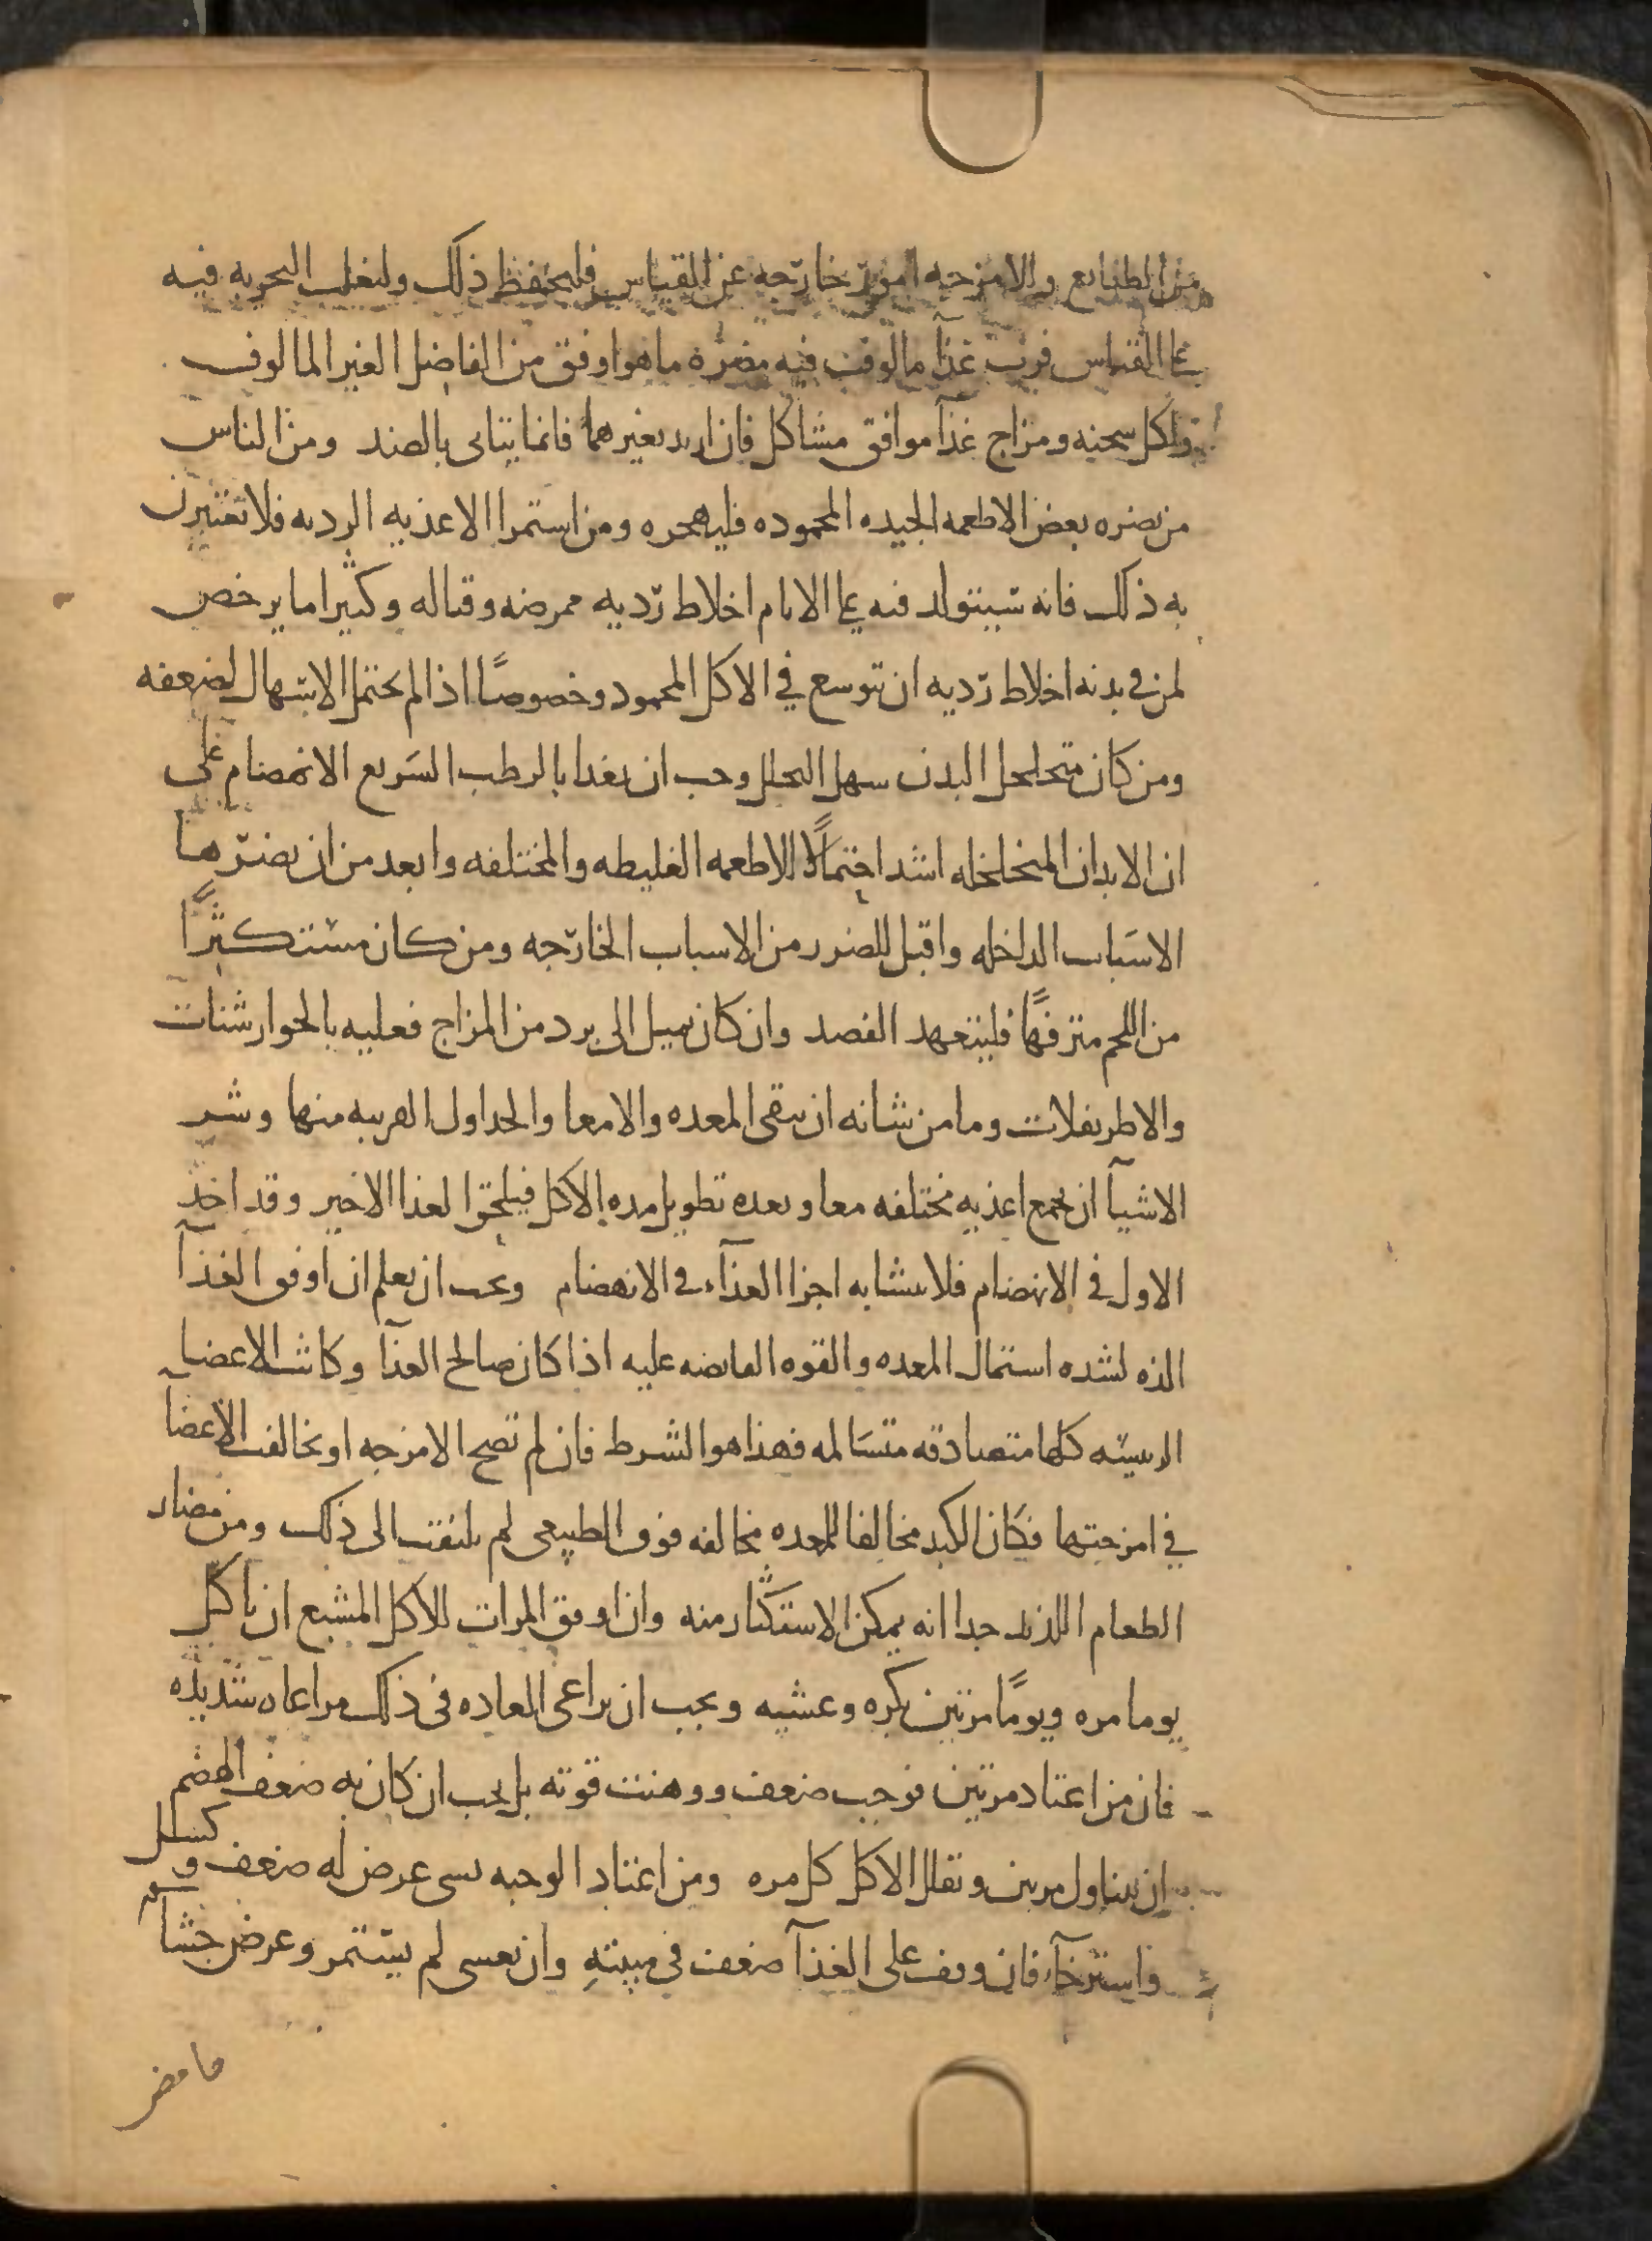 من الطبايع والامزجه امور خارجه عن القياس فليحفظ ذلك وليغلب التجربه فيه
على القياس فرب غذآ مالوف فيه مضره ما هو اوفق من الفاضل الغير المالوف
ولكل سحنه ومزاج غذآ موافق مشاكل فان اريد تغيرهما فانما يتاتى بالضد ومن الناس
من يضره بعض الاطعمه الجيده المحموده فليهجره ومن استمرا الاغذيه الرديه فلا تغترن
به ذلك فانه سيتولد فيه على الايام اخلاط رديه ممرضه وقتاله وكثيرا ما يرخص
لمن في بدنه اخلاط رديه ان يتوسع في الاكل المحمود وخصوصًا اذا لم يحتمل الاسهال لضعفه
ومن كان متخلخل البدن سهل التحلل وجب ان يغذا بالرطب السريع الانهضام على
ان الابدان المتخلخله اشد احتمالًا للاطعمه الغليظه والمختلفه وابعد من ان يضرها
الاسباب الداخله واقبل للضرر من الاسباب الخارجه ومن كان مستكثرًا
من اللحم مترفهًا فليتعهد الفصد وان كان يميل الى برد من المزاج فعليه بالجوارشنات
والاطريفلات وما من شانه ان ينقى المعده والامعا والجداول القريبه منها وشر
الاشيآ ان يجمع اغذيه مختلفه معا وبعده تطويل مده الاكل فيلحق الغذا الاخير وقد اخذ
الاول في الانهضام فلا يتشابه اجزا الغذآء في الانهضام ويجب ان يعلم ان اوفق الغذآ
الذه لشده اشتمال المعده والقوه القابضه عليه اذا كان صالح الغذآ وكانت الاعضا
الرييسه كلها متصادقه متسالمه فهذا هو الشرط فان لم تصح الامزجه او تخالفت الاعضآ
في امزجتها فكان الكبد مخالفا للمعده مخالفه فوق الطبيعى لم يلتفت الى ذلك ومن مضار
الطعام اللذيذ جدا انه يمكن الاستكثار منه وان اوفق المرات للاكل المشبع ان ياكل
يوما مره ويومًا مرتين بكره وعشيه ويجب ان يراعى العاده في ذلك مراعاه شديده
فان من اعتاد مرتين فوجب ضعف ووهنت قوته بل يجب ان كان به ضعف الهضم
ان يتناول مرتين ويقلل الاكل كل مره ومن اعتاد الوجبه سى عرض له ضعف وكسل
واسترخآء فان وقف على الغذآ ضعف في مبيته وان تعسى لم يستمر وعرض جشآ
حامضر